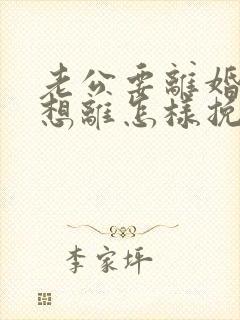 老公要離婚
想離怎樣挽
李家坪